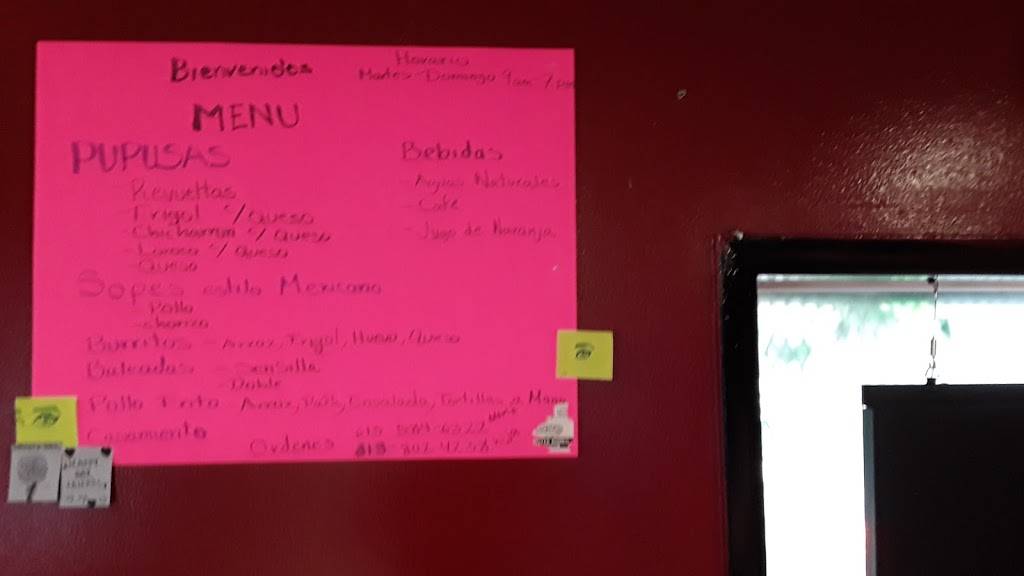 Bienvenidos
Horario
Martes - Domingo 9am - 7pm
MENU
PUPUSAS
Revueltas
- Frijol c/queso
- Chicharron c/ queso
- Loroco c/ queso
- Queso
Bebidas
- Aguas Naturales
- Cafe
- Jugo de Naranja
Sopes estilo Mexicano
- Pollo
- Chorizo
Burritos - Arroz, Frijol, Huevo, Queso
Baleadas - Sensilla
- Doble
Pollo Frito - Arroz, Ensalada, Tortillas a Mano
Casamiento
Ordenes